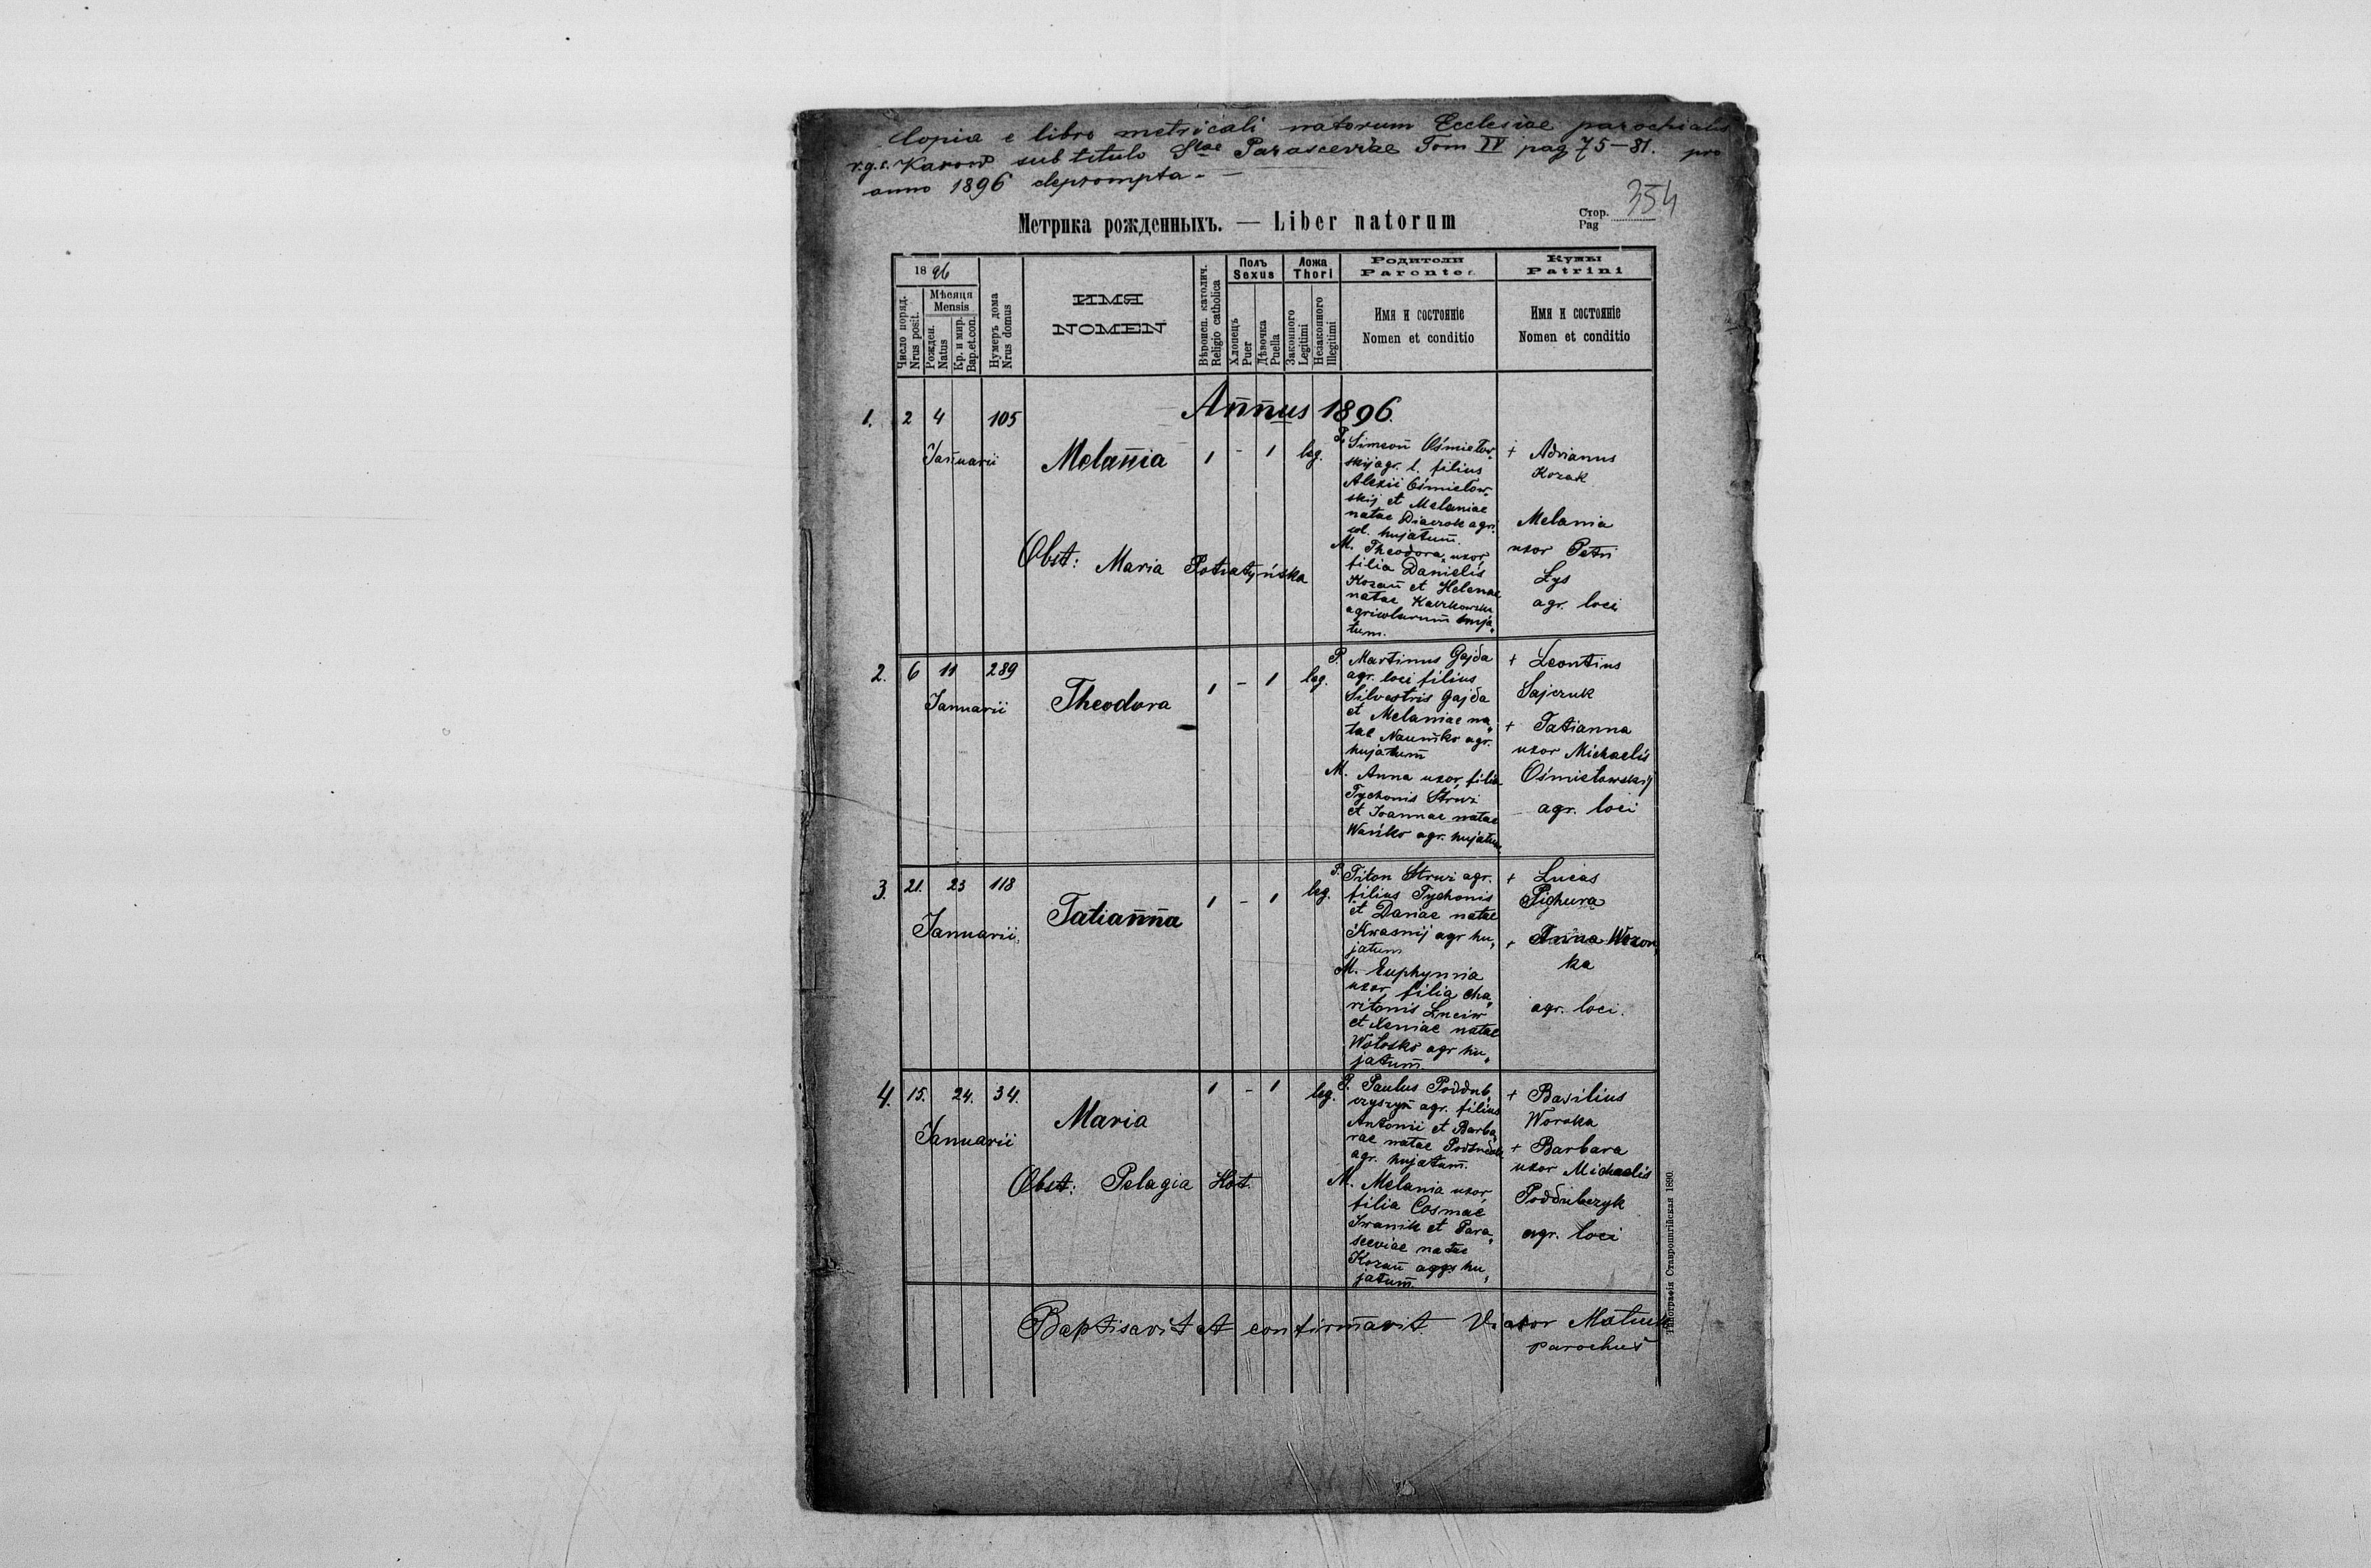 Copia e libro metricali natorum Ecclesiae parochialis
r.g.c. Karow sub titulo Stae Parascevae Tom IV pag 75–81. pro
anno 1896 deprompta. –
Метрика рожденныхъ. — Liber natorum
Стор.
Pag
354
18 96
Мѣсяця
Mensis
Число поряд.
Nrus posit.
Рожден.
Natus
Кр. и мир.
Bap.et.con.
Нумеръ дома
Nrus domus
ИМЯ
NOMEN
Вѣроисп. католич.
Religio catholica
Полъ
Sexus
Хлопецъ
Puer
Дѣвочка
Puella
Ложа
Thori
Законного
Legitimi
Незаконного
Illegitimi
Родители
Parentes
Имя и состоянiе
Nomen et conditio
Кумы
Patrini
Имя и состоянiе
Nomen et conditio
Annus 1896.
1. 2 4 105
Januarii
Melania
1 - 1 leg.
Obst: Maria Potiatyńska
P. Simeon Ośmietow
skij agr. l. filius
Alexii Ośmietow
skij et Melaniae
natae Diaczok agri
col. hujatum.
M. Theodora, uxor,
filia Danielis
Kozan et Helenae
natae
agricolarum huja
tum.
+ Adrianus
Kozak
Melania
uxor Petri
Łys
agr. loci
2. 6 11 289
Januarii
Theodora
1 - 1 leg.
P. Martinus Gajda
agr. loci filius
Silvestris Gajda
et Melaniae na
tae Naumko agr.
hujatum
M. Anna uxor, filia
Tychonis Struzi
et Joannae natae
Wańko agr. hujatum
+ Leontius
Sajczuk
+ Tatianna
uxor Michaelis
Ośmietowskij
agr. loci
3. 21. 23 118
Januarii
Tatianna
1 - 1 leg.
P. Titon Struzi agr.
filius Tychonis
et Danae natae
Kwasnij agr hu
jatum
M. Euphymia
uxor filia Cha
ritonis Łuciw
et Xeniae natae
Wołosko agr hu
jatum
+ Lucas
Pighura
+ Anna Woron
ka
agr. loci.
4. 15. 24. 34.
Januarii
Maria
1 - 1 leg.
Obst: Pelagia Hot.
P. Paulus Poddub
czyszyn agr. filius
Antonii et Barba
rae natae
agr. hujatum.
M. Melania uxor,
filia Cosmae
Iwanik et Para
sceviae natae
Kozan agr hu
jatum
+ Basilius
Woroka
+ Barbara
uxor Michaelis
Poddubczyk
agr. loci
Baptisavit et confirmavit Viator
parochus
Типографiя Ставропигiйская 1890.